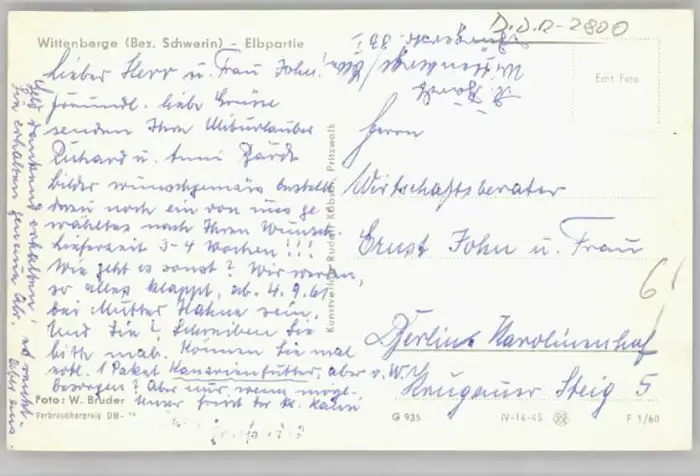 D.D.R-2800
Wittenberge (Bez. Schwerin) - Elbpartie
Echt Foto
Lieber Herr u. Frau John!
Freundl. liebe Grüße
senden Ihre Miturlauber
Richard u. Anni
Bilder wunschgemäß bestellt
dazu noch ein von uns ge
wähltes nach Ihrem Wunsch.
Lieferzeit 3-4 Wochen!!!
Wie geht es sonst? Wir werden,
so alles klappt, ab. 4.9.61
bei Mutter Hahne sein.
Und Sie? Schreiben Sie
bitte mal. Können Sie mal
evtl. 1 Paket Kanarienfutter, aber v. W.
besorgen? Aber nur wenn mögl.
Unser frißt der
Geld dankend erhalten!
Sie erhalten genaue Abr.
Herrn
Wirtschaftsberater
Ernst John u. Frau
Berlin Karolinenhof
Steig 5
6
Kunstverlag Rudolf Kubsch, Pritzwalk
Foto: W. Bruder
Verbraucherpreis DM
G 935
IV-14-45
F 1/60